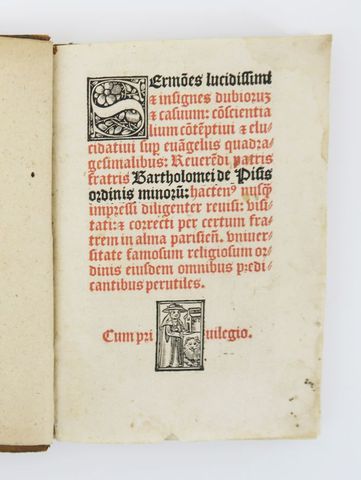 Sermões lucidissimi
& insignes dubioruz
& casuum: cõscientia
lium cõtẽptiui & elu-
cidatiui sup euãgelijs quadra-
gesimalibus: Reuerẽdi patris
fratris Bartholomei de Pisis
ordinis minorũ: hactenꝰ nusꝙ̃
impressi diligenter reuisi: visi-
tati: & correcti per certum fra-
trem in alma parisieñ. vniuer-
sitate famosum religiosum or-
dinis eiusdem omnibus predi-
cantibus perutiles.
Cum pri uilegio.